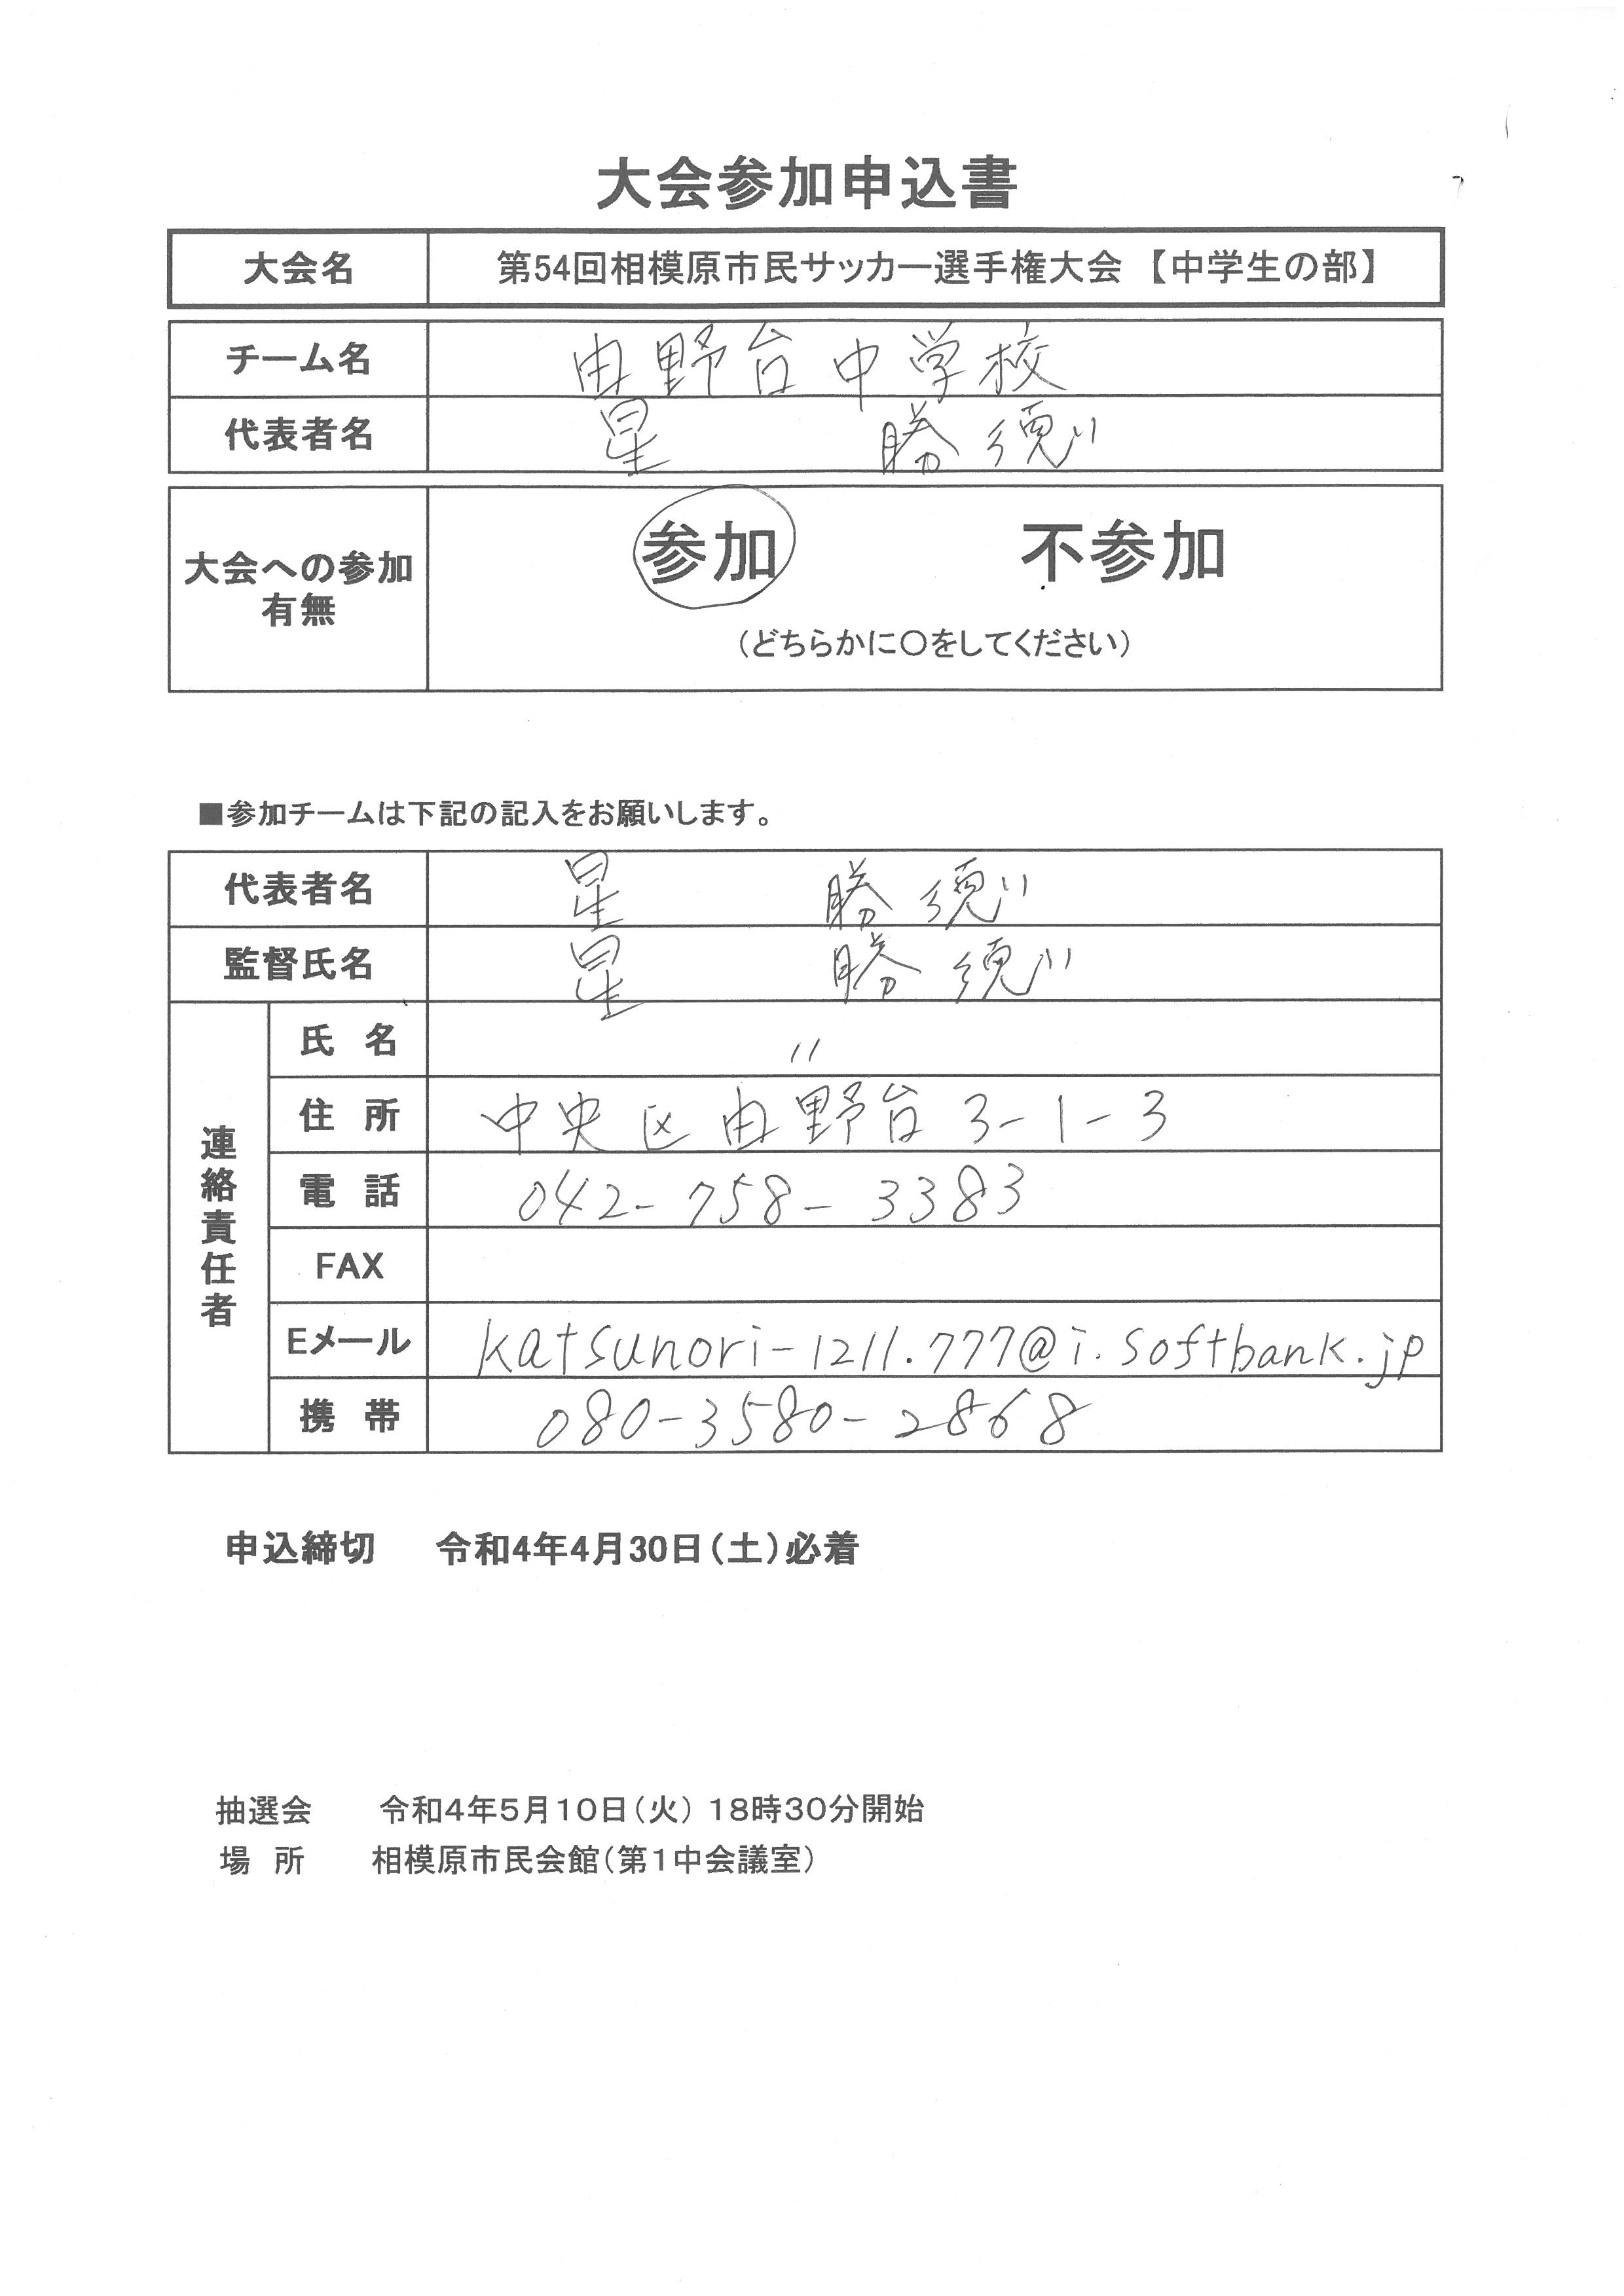 大会参加申込書
大会名 第54回相模原市民サッカー選手権大会【中学生の部】
チーム名 由野台中学校
代表者名 星 勝徳
大会への参加
有無
参加 不参加
(どちらかに〇をしてください)
■参加チームは下記の記入をお願いします。
代表者名 星 勝徳
監督氏名 星 勝徳
連絡責任者
氏 名 〃
住 所 中央区由野台3-1-3
電 話 042-758-3383
FAX
Eメール katsunori-1211.777@i.softbank.jp
携 帯 080-3580-2868
申込締切 令和4年4月30日(土)必着
抽選会 令和4年5月10日(火) 18時30分開始
場 所 相模原市民会館(第1中会議室)